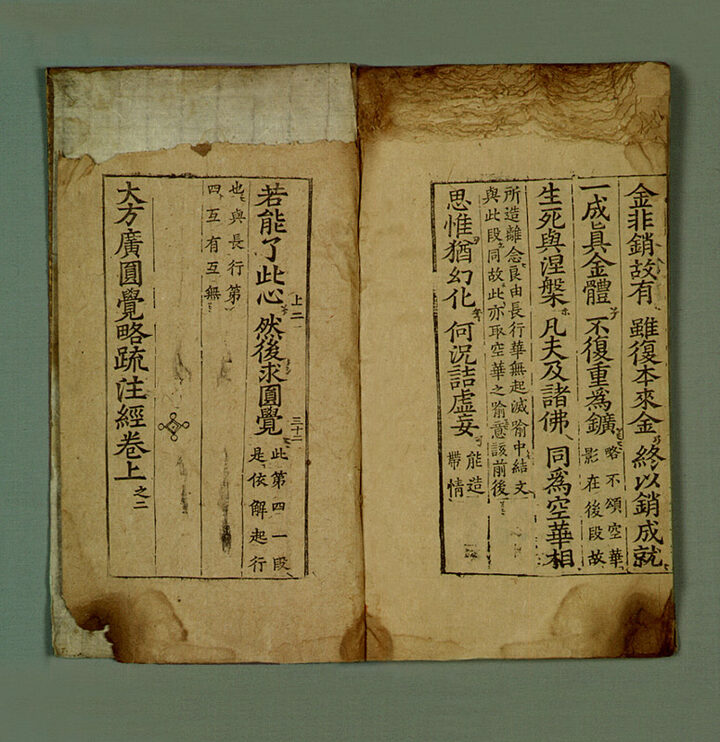 金非銷故有 雖復本來金 終以銷成就
一成眞金體 不復重為鑛 略不頌空華影在後段故
生死與涅槃 凡夫及諸佛 同為空華相
所造離念良由長行華無起滅喻中結文
與此段同故此亦取空華之喻意該前後
思惟猶幻化 何況詰虛妄 能造帶情
若能了此心 然後求圓覺 此第四一段是依解起行
上二
三十二
也與長行第
四互有互無
大方廣圓覺略疏注經卷上之二